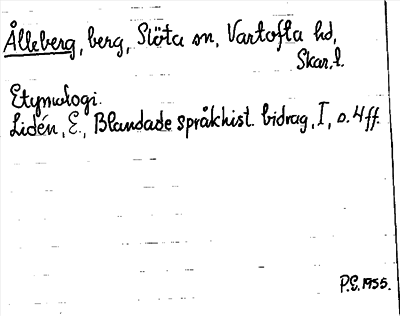 Ålleberg, berg, Slöta sn, Vartofta hd,
Skar. l.
Etymologi.
Lidén, E., Blandade språkhist. bidrag, I, s. 4 ff.
P.G. 1955.